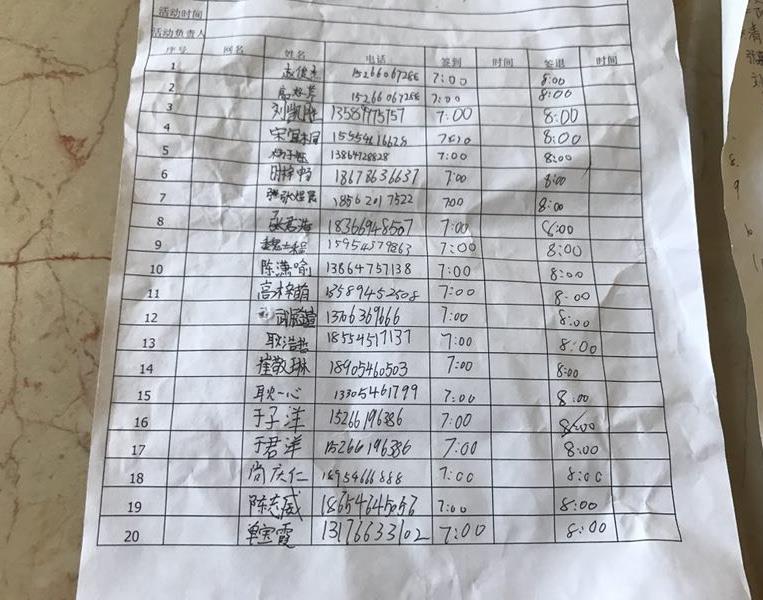 活动时间
活动负责人
序号 网名 姓名 电话 签到 时间 签退 时间
1 15266067288 7:00 8:00
2 15266067288 7:00 8:00
3 刘凯 13589775757 7:00 8:00
4 8:00
5 13864728828 7:00 8:00
6 18678636637 7:00 8:00
7 18562017522 700 8:00
8 张君浩 18366948507 7:00 8:00
9 15954579863 7:00 8:00
10 陈潇喻 13864757138 7:00 8:00
11 高梓萌 13589452508 7:00 8:00
12 13706369666 7:00 8:00
13 耿浩哲 18554517137 7:00 8:00
14 崔敬琳 18905460503 7:00 8:00
15 耿一心 13305461799 7:00 8:00
16 于子洋 15266196386 7:00 8:00
17 于君洋 15266196386 7:00 8:00
18 尚庆仁 18954666888 7:00 8:00
19 陈志威 7:00 8:00
20 单宝霞 13176633102 7:00 8:00